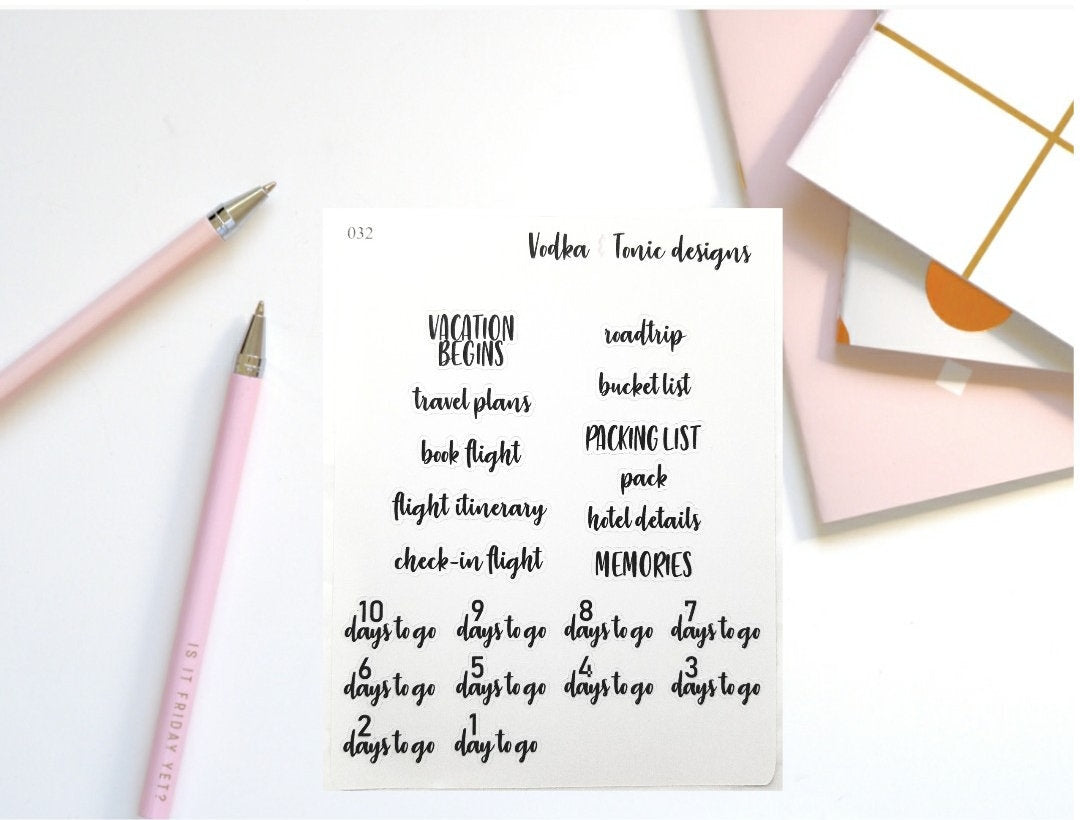 032
Vodka & Tonic designs
VACATION
BEGINS
travel plans
book flight
flight itinerary
check-in flight
roadtrip
bucket list
PACKING LIST
pack
hotel details
MEMORIES
10 days to go
9 days to go
8 days to go
7 days to go
6 days to go
5 days to go
4 days to go
3 days to go
2 days to go
1 day to go
IS IT FRIDAY YET?